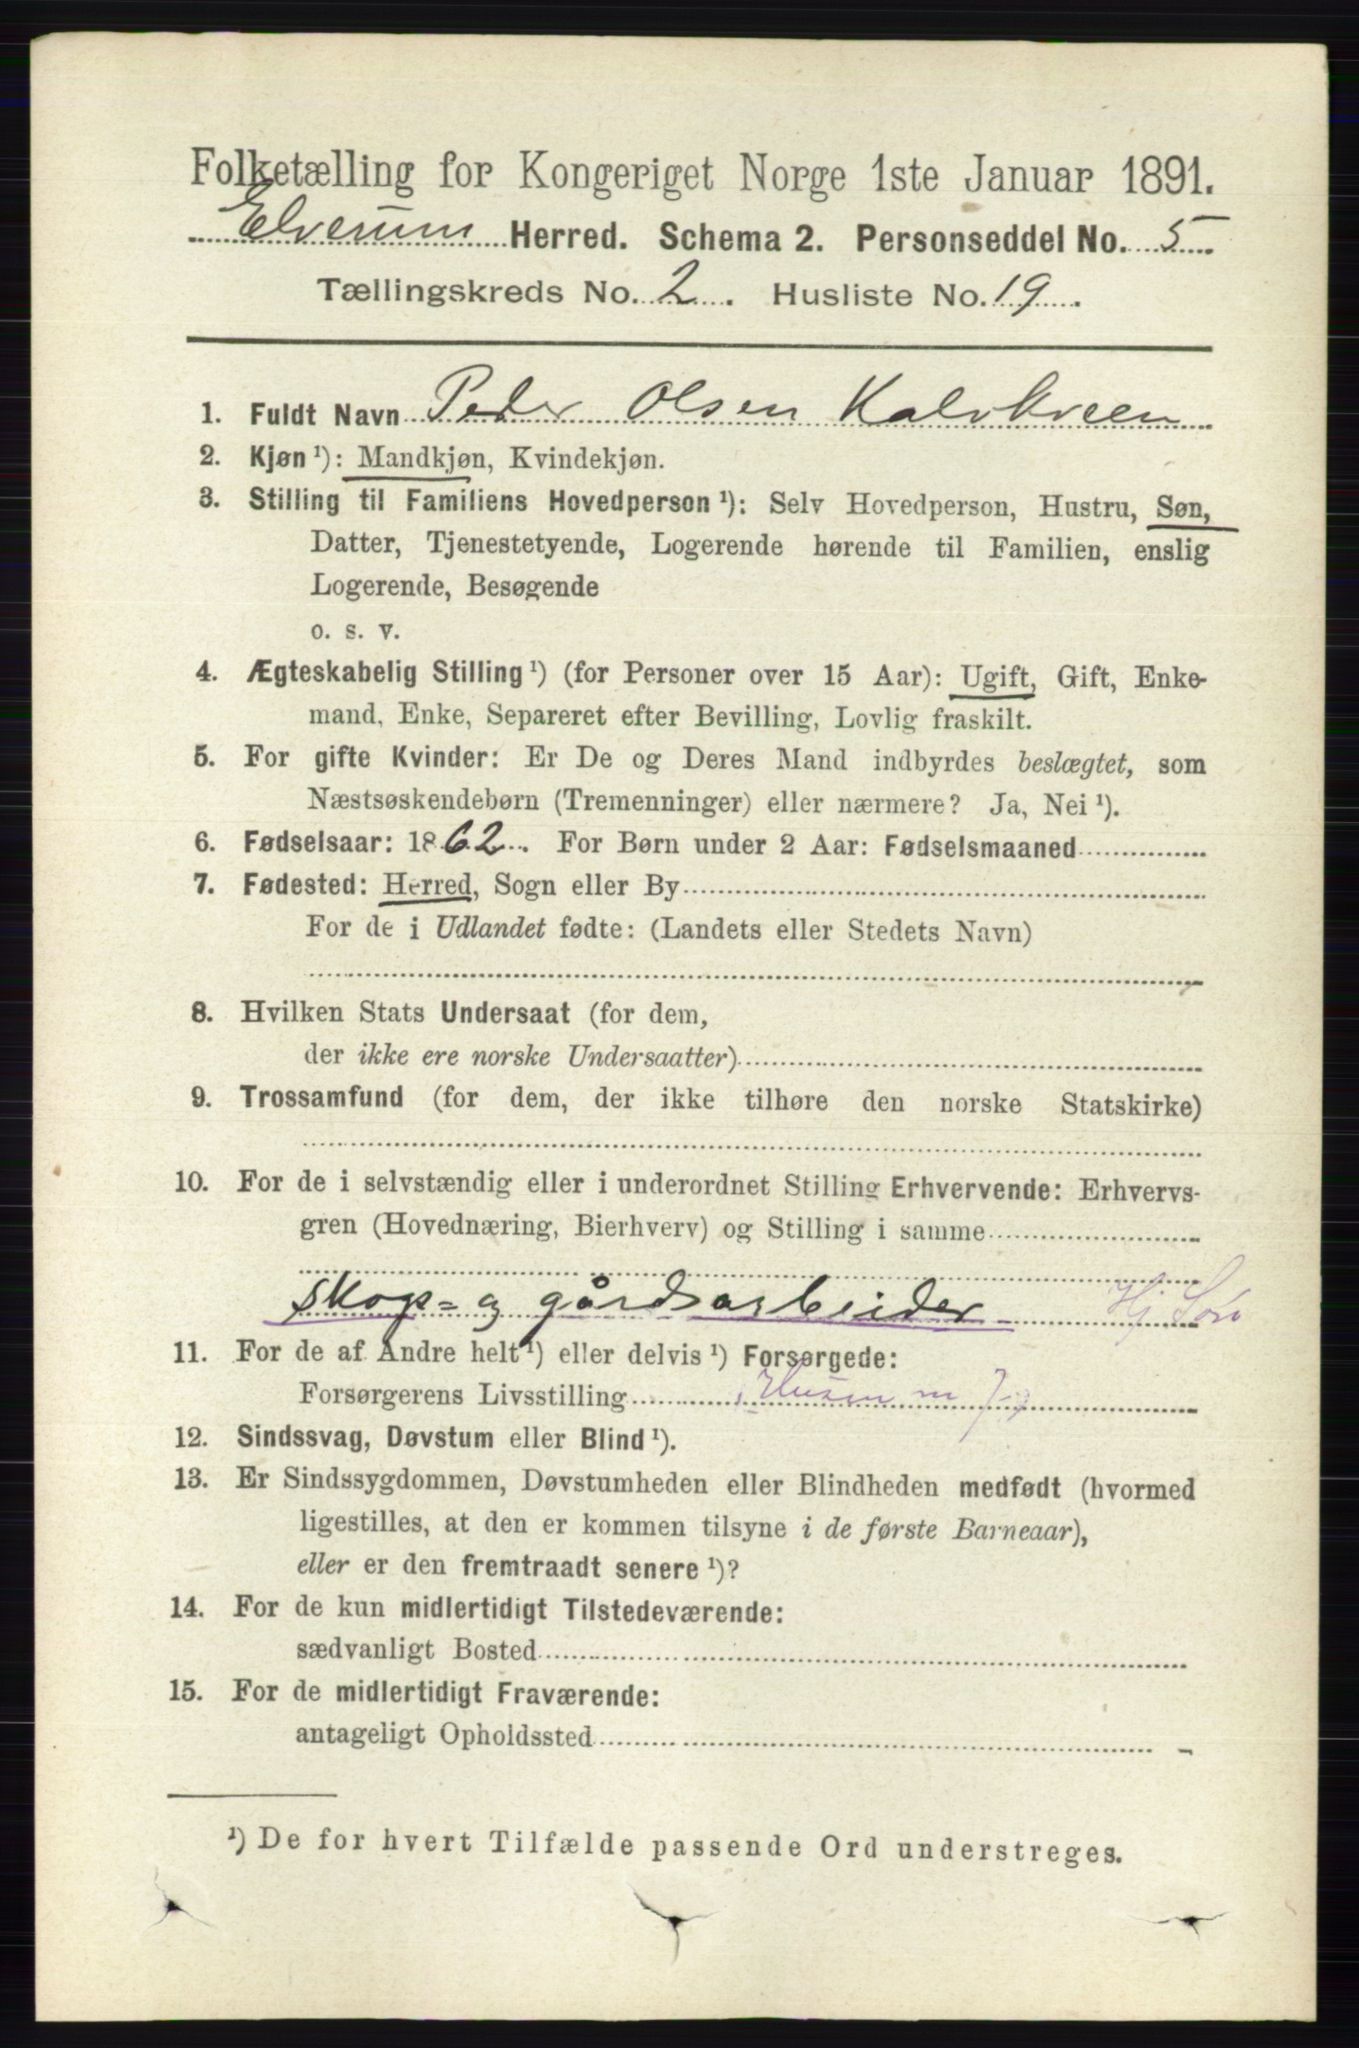 Folketælling for Kongeriget Norge 1ste Januar 1891.
Elverum Herred. Schema 2. Personseddel No. 5
Tællingskreds No. 2. Husliste No. 19.
1. Fuldt Navn Peder Olsen Kalvkveen
2. Kjøn ¹): Mandkjøn, Kvindekjøn.
3. Stilling til Familiens Hovedperson ¹): Selv Hovedperson, Hustru, Søn,
Datter, Tjenestetyende, Logerende hørende til Familien, enslig
Logerende, Besøgende
o. s. v.
4. Ægteskabelig Stilling ¹) (for Personer over 15 Aar): Ugift, Gift, Enke-
mand, Enke, Separeret efter Bevilling, Lovlig fraskilt.
5. For gifte Kvinder: Er De og Deres Mand indbyrdes beslægtet, som
Næstsøskendebørn (Tremenninger) eller nærmere? Ja, Nei ¹).
6. Fødselsaar: 1862. For Børn under 2 Aar: Fødselsmaaned
7. Fødested: Herred, Sogn eller By
For de i Udlandet fødte: (Landets eller Stedets Navn)
8. Hvilken Stats Undersaat (for dem,
der ikke ere norske Undersaatter)
9. Trossamfund (for dem, der ikke tilhøre den norske Statskirke)
10. For de i selvstændig eller i underordnet Stilling Erhvervende: Erhvervs-
gren (Hovednæring, Bierhverv) og Stilling i samme
skog- og gårdsarbeider Hj Søn
11. For de af Andre helt ¹) eller delvis ¹) Forsørgede:
Forsørgerens Livsstilling Husm m J
12. Sindssvag, Døvstum eller Blind ¹).
13. Er Sindssygdommen, Døvstumheden eller Blindheden medfødt (hvormed
ligestilles, at den er kommen tilsyne i de første Barneaar),
eller er den fremtraadt senere ¹)?
14. For de kun midlertidigt Tilstedeværende:
sædvanligt Bosted
15. For de midlertidigt Fraværende:
antageligt Opholdssted
¹) De for hvert Tilfælde passende Ord understreges.